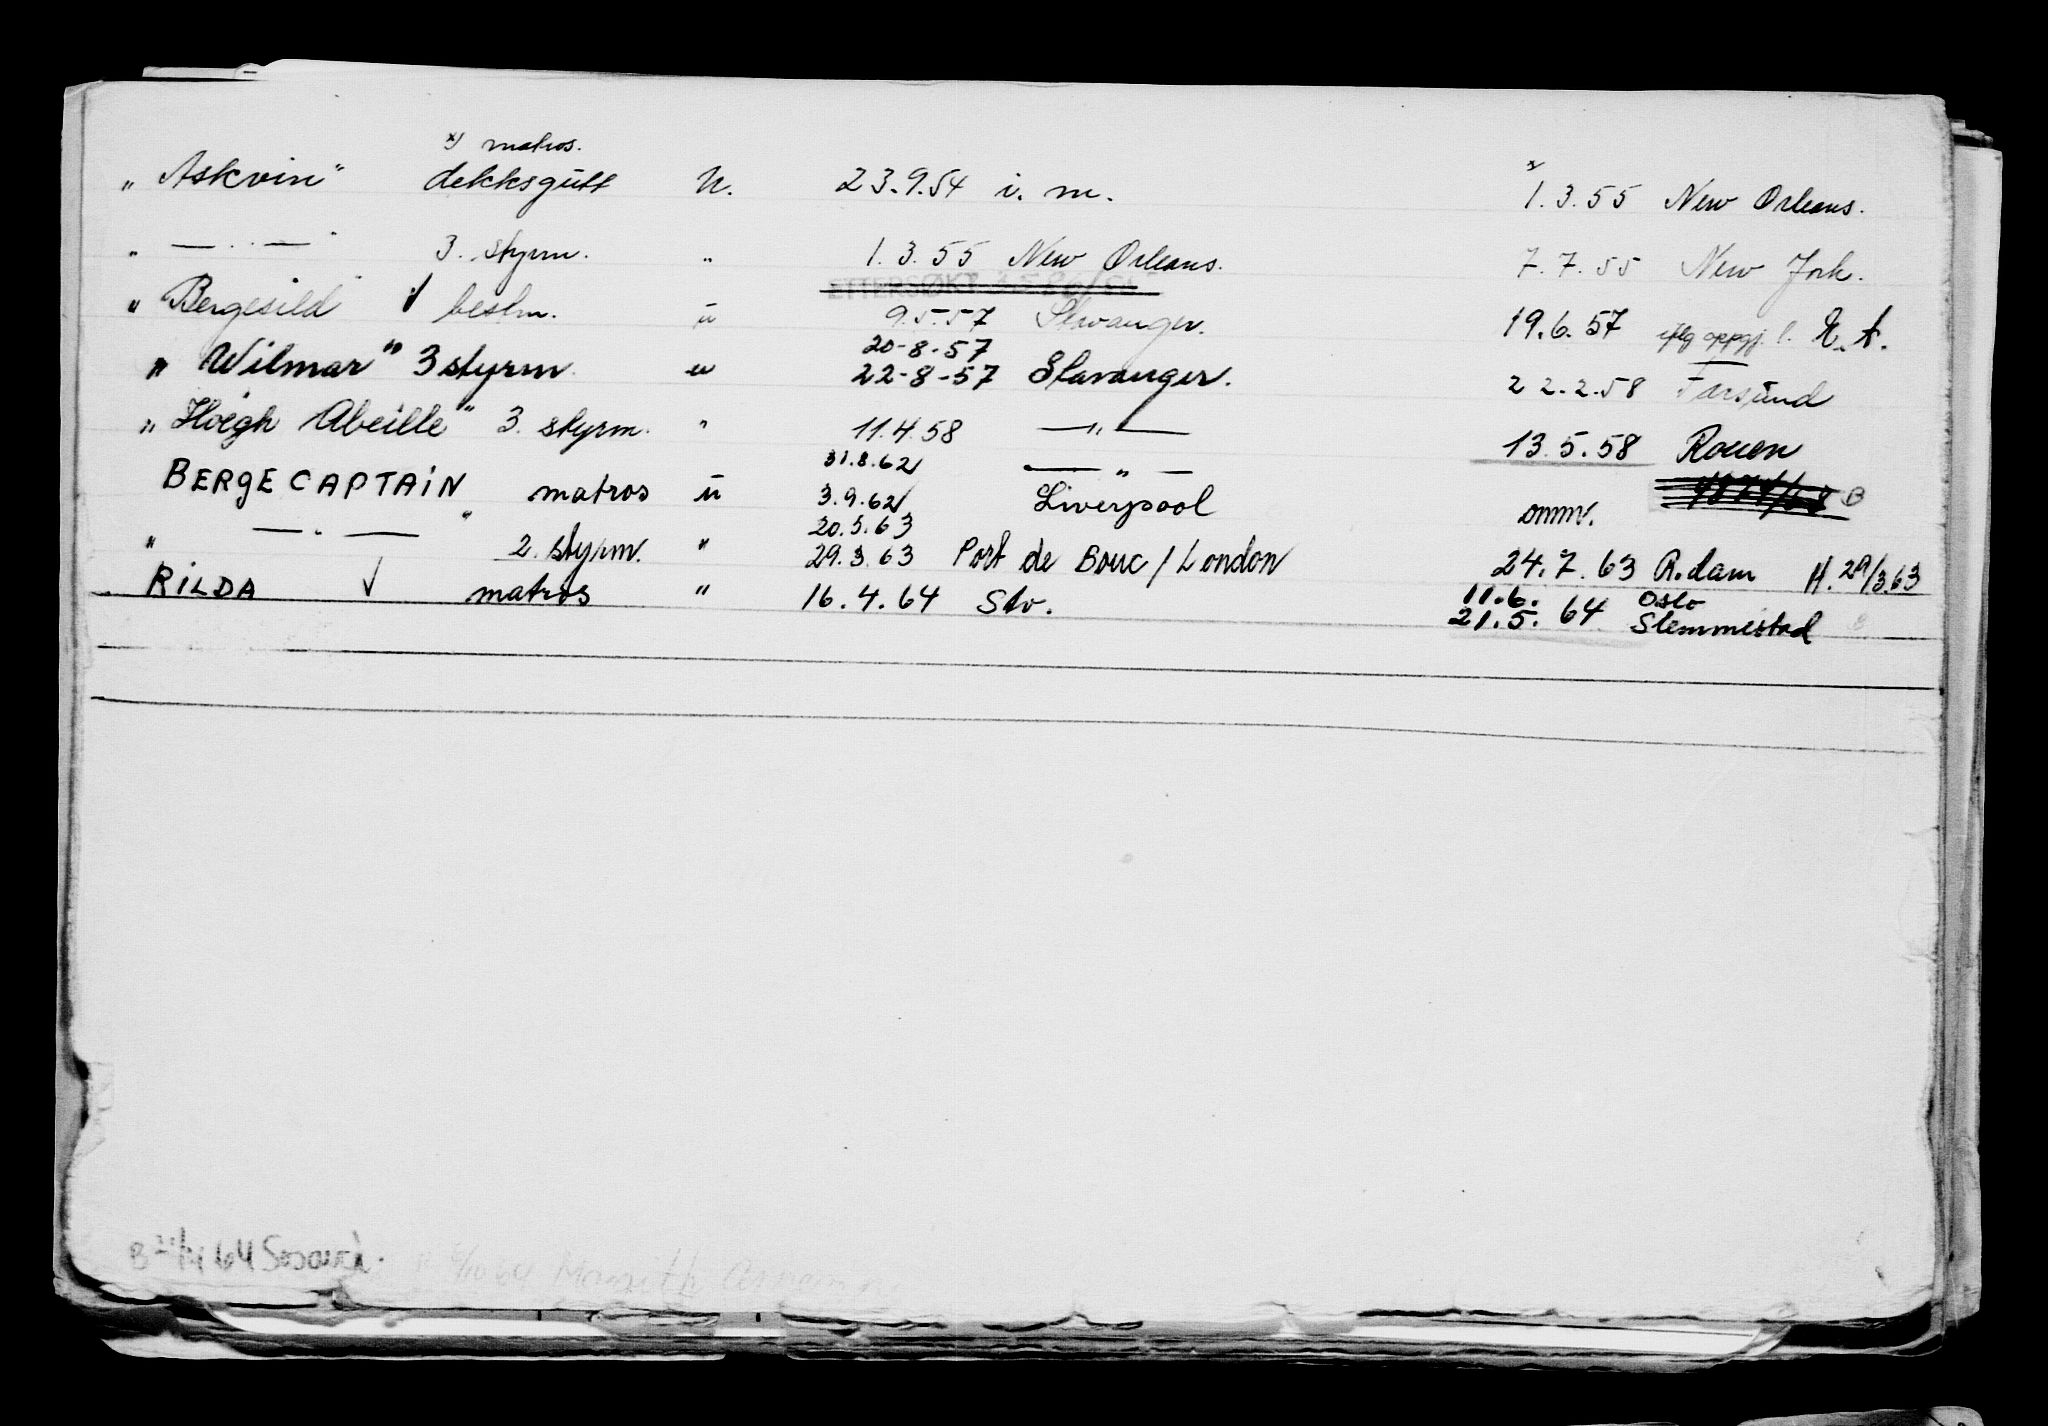 x) matros.
" Askvin" dekksgutt u. 23.9.54 i. m. x 1.3.55 New Orleans.
" — " — " 3. styrm. " 1.3.55 New Orleans. 7.7.55 New York.
ETTERSØKT
" Bergesild bestm. u 9.5.57 Stavanger. 19.6.57 iflg oppgj. f.
20-8-57
" Wilmar" 3 styrm. u 22-8-57 Stavanger. 22.2.58 Farsund
" Höegh Abeille" 3. styrm. " 11.4.58 — " — 13.5.58 Rouen
31.8.62 — " —
BERGECAPTAIN matros u 3.9.62 Liverpool omm. B
20.3.63
" — " — " 2. styrm. " 29.3.63 Port de Bouc / London 24.7.63 R.dam H. 29/3.63
RILDA matros " 16.4.64 Stv. 11.6. Oslo
21.5. 64 Slemmestad
B 64